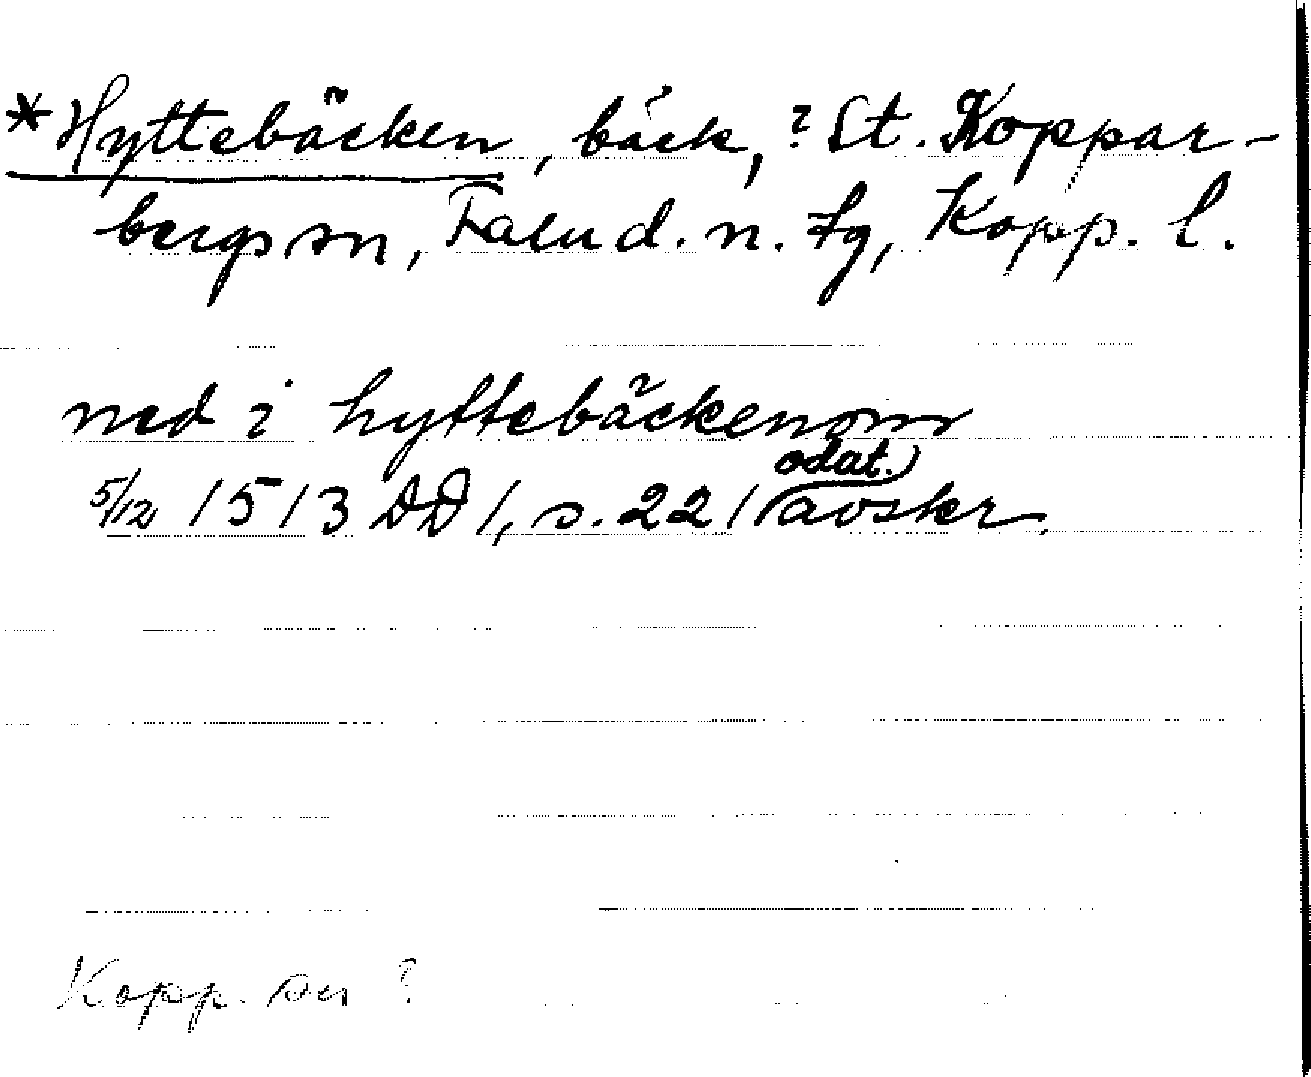 *Hyttebäcken, bäck, ? St. Koppar-
bergs sn, Falu d. n. fg, Kopp. l.
ned i hyttebäckenom
5/12 1513 DD 1, s. 221 (odat.) avskr.
Kopp. sn ?